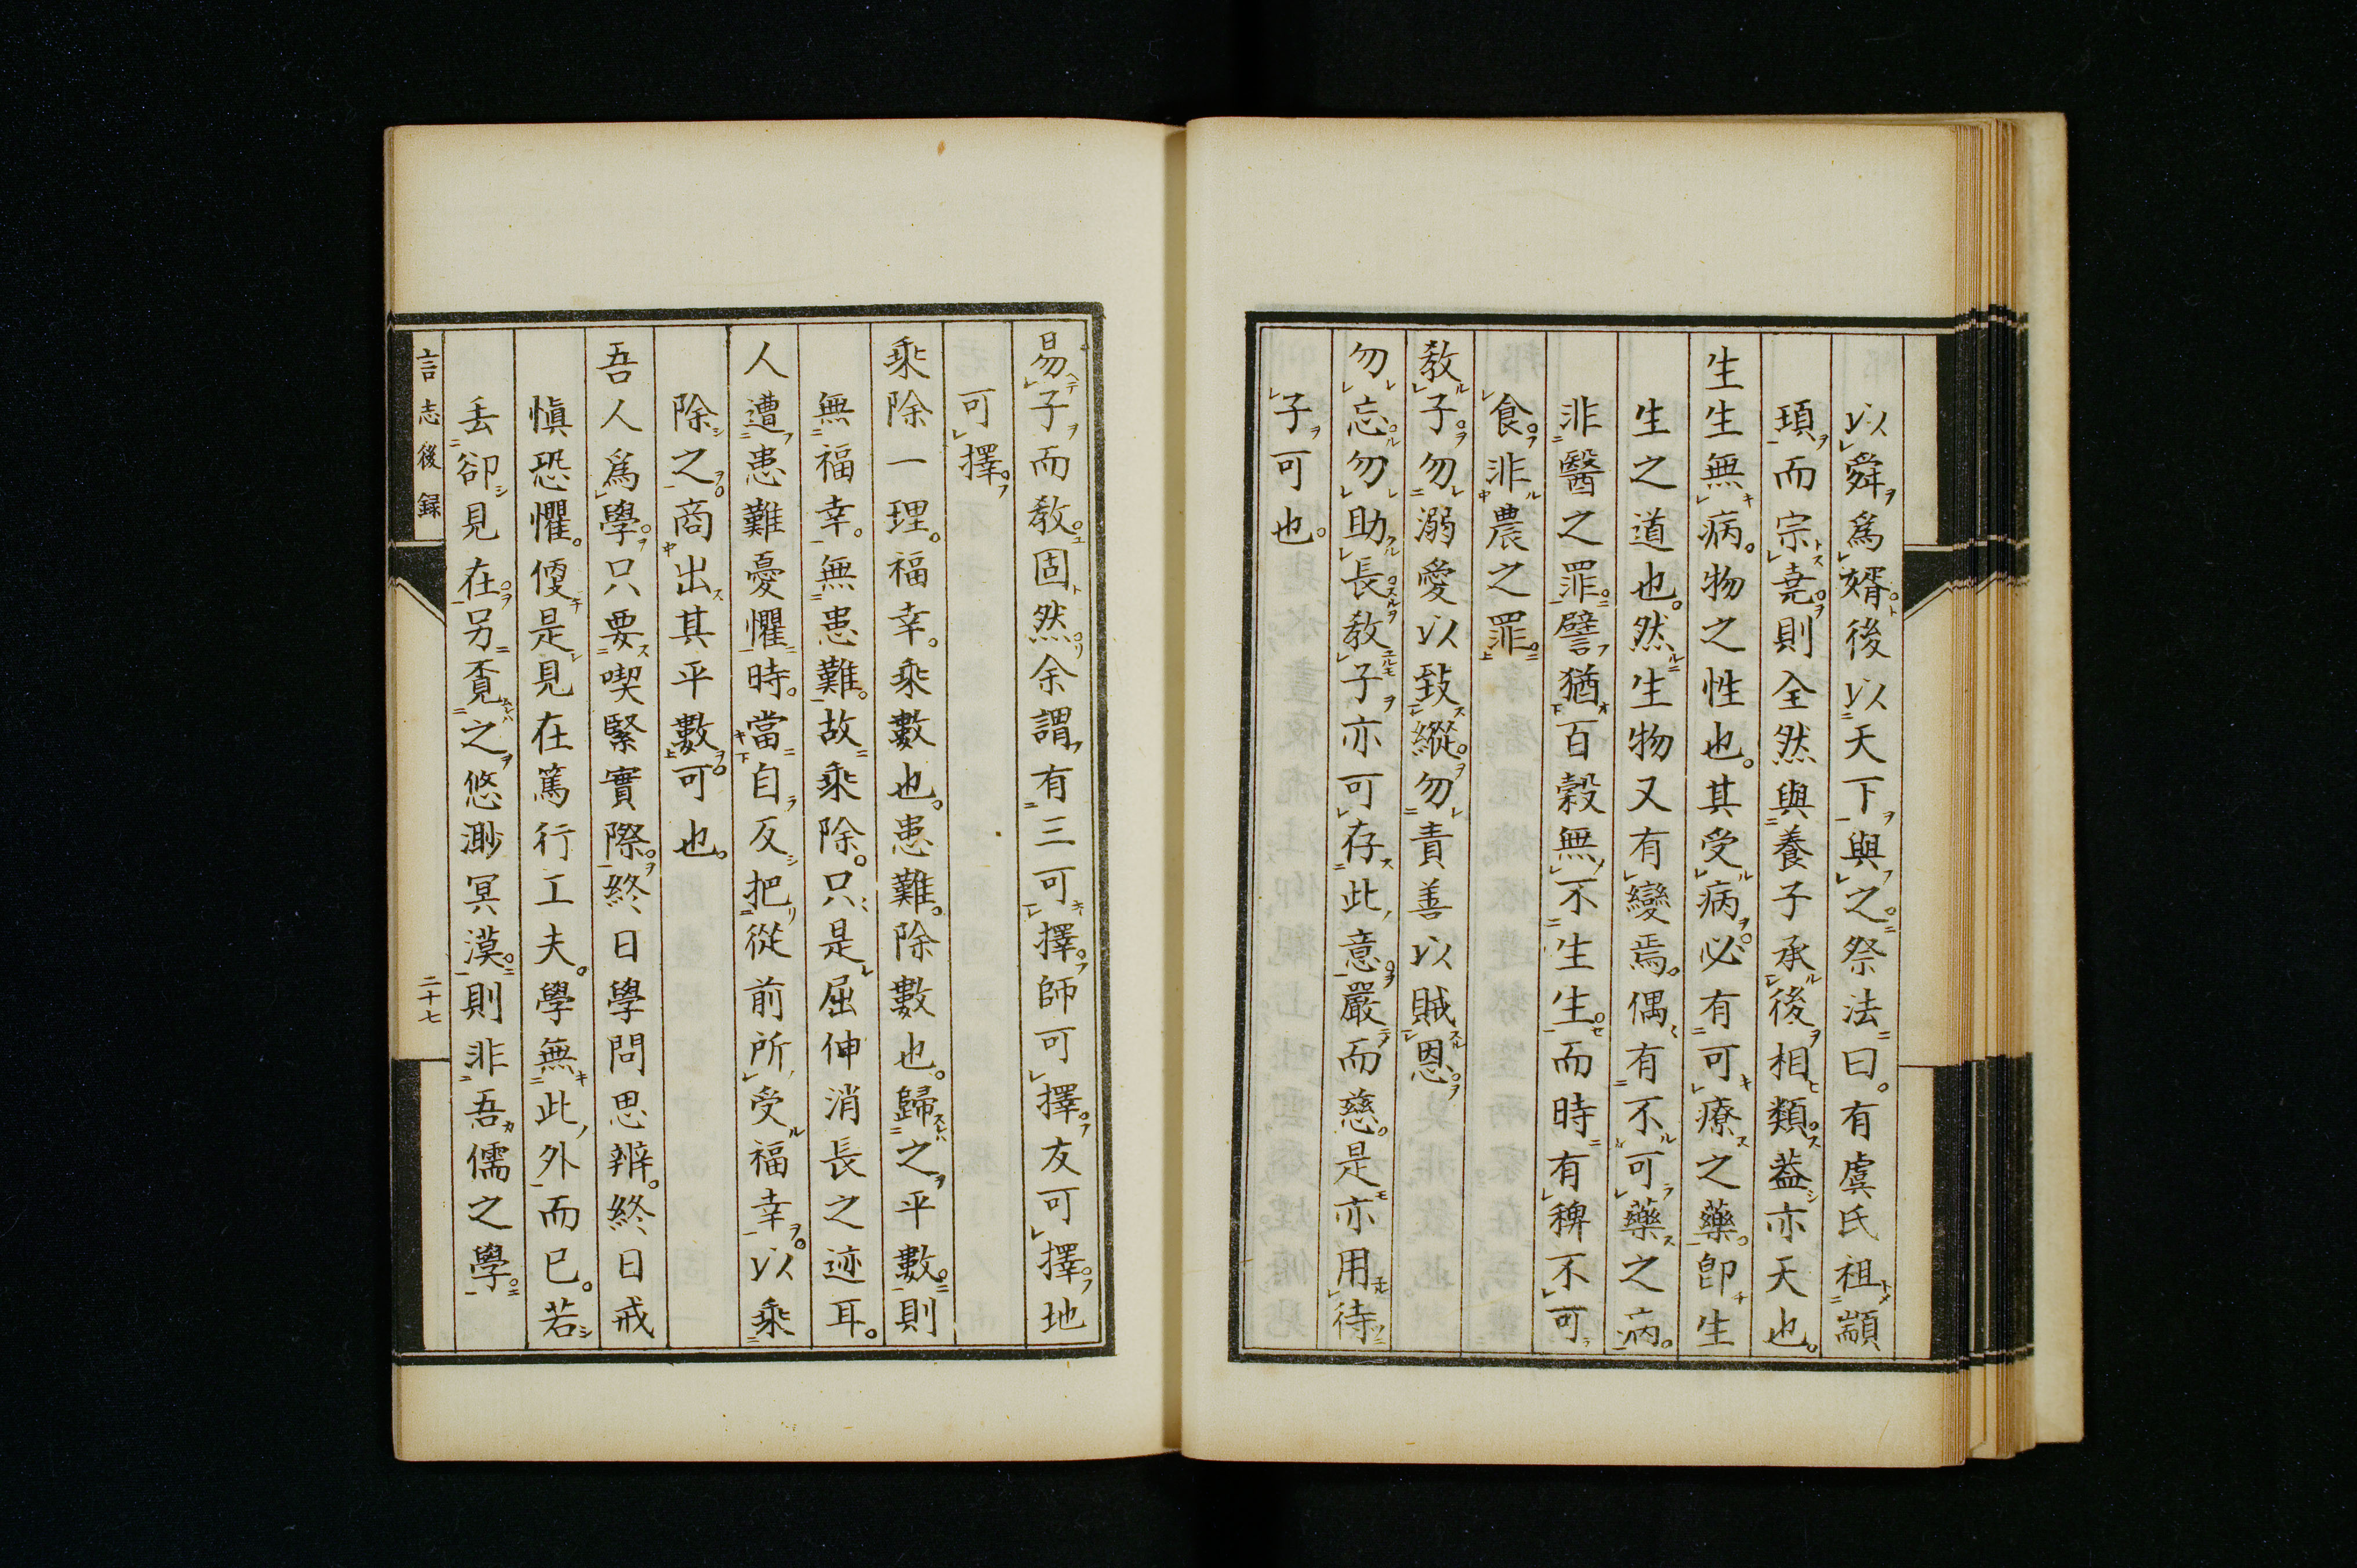 以舜爲婿後以天下與之祭法曰。有虞氏祖顓
頊而宗堯則全然與養子承後相類蓋亦天也。
生生無病。物之性也。其受病必有可療之藥。卽生
生之道也。然生物又有變焉。偶有不可藥之病。
非醫之罪譬猶百穀無不生生而時有稗不可
食非農之罪
敎子勿溺愛以致縱勿責善以賊恩
勿忘勿助長敎子亦可存此意嚴而慈。是亦用待
子可也。
易子而敎固然余謂有三可擇師可擇友可擇地
可擇
乘除一理。福幸。乘數也。患難。除數也。歸之平數則
無福幸。無患難。故乘除。只是屈伸消長之迹耳。
人遭患難憂懼時。當自反把從前所受福幸以乘
除之。商出其平數可也。
吾人爲學只要喫緊實際終日學問思辨。終日戒
愼恐懼。便是見在篤行工夫。學無此外而已。若
丢卻見在另覓之悠渺冥漠則非吾儒之學
言志後録
二十七